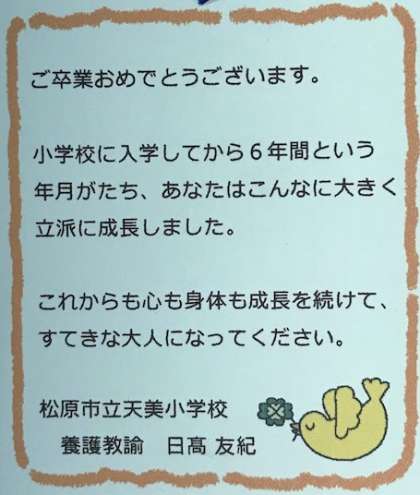 ご卒業おめでとうございます。
小学校に入学してから６年間という
年月がたち、あなたはこんなに大きく
立派に成長しました。
これからも心も身体も成長を続けて、
すてきな大人になってください。
松原市立天美小学校
養護教諭　日髙 友紀